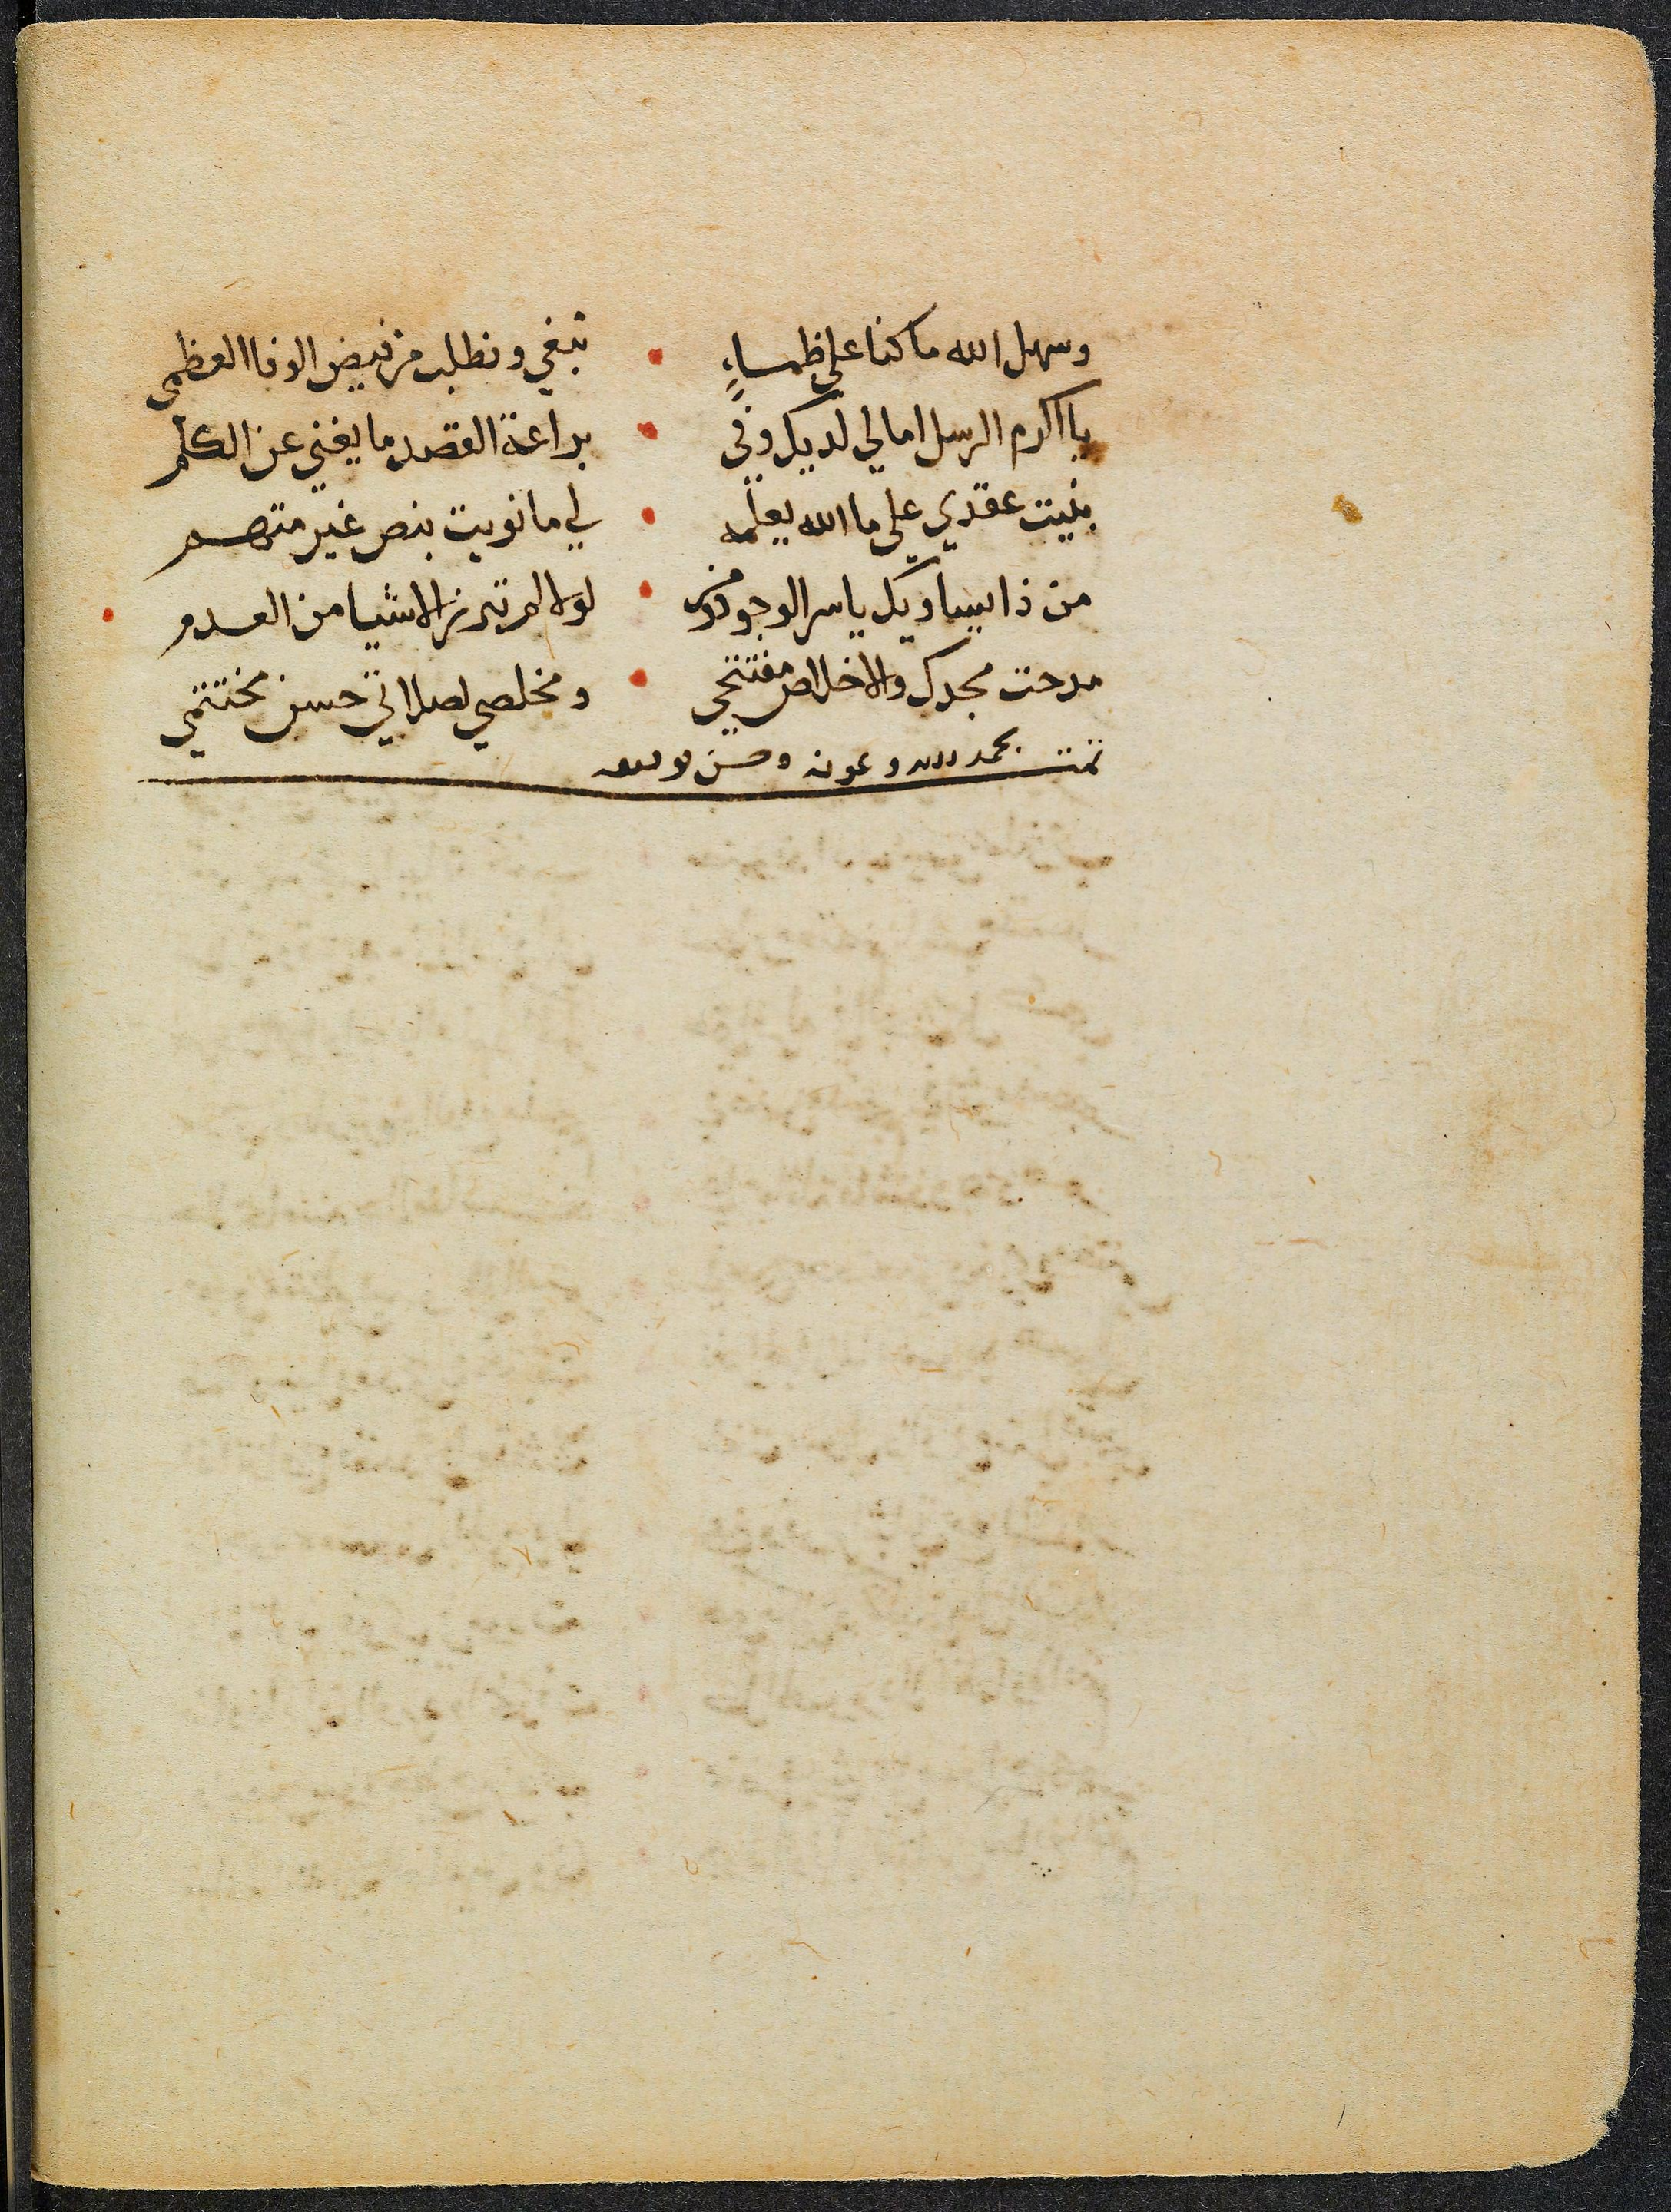 وسهل الله ما كنا علي ظماءٍ • نبغي ونطلب من فيض الوفا العظمي
يا اكرم الرسل امالي لديك وفي • براعة القصد ما يغني عن الكلم
بنيت عقدي علي ما الله يعلمه • لي ما نويت بنص غير متهم
من ذا يساويك يا سر الوجود ومن • لولاه لم تبرز الاشيا من العدم •
مدحت مجدك والاخلاص مفتتحي • ومخلصي لصلاتي حسن مختتمي
تمت بحمد الله وعونه وحسن توفيقه